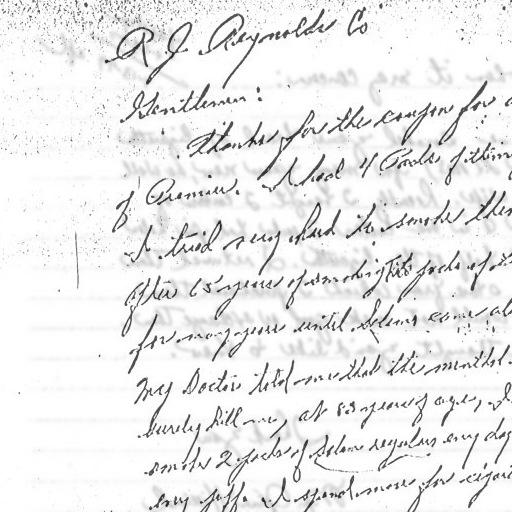 R J Reynolds Co
Gentlemen:
Thanks for the coupon for a
of Premier. I had 4 Packs of them
I tried very hard to smoke them
After 65 years of smoking packs of
for many years until Salems came al
My Doctor told me that the menthol
surely kill me, at 83 years of age, I
smoke 2 packs of Salem regulars every day
I spend more for cigar